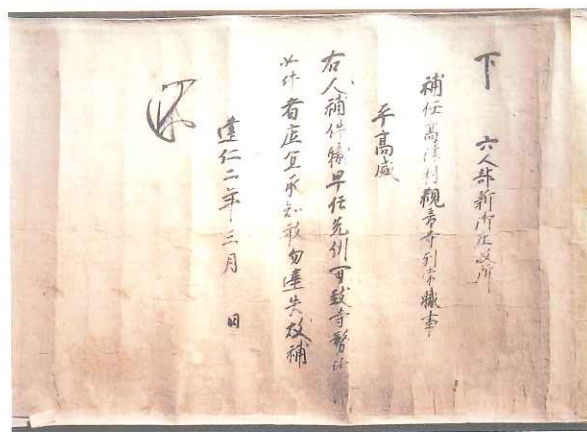 下 六人部新御庄政所
補任高津村観音寺別当職事
平高盛
右人補件職早任先例可致寺務
如件者庄宜承知敢勿違失故補
建仁二年三月 日